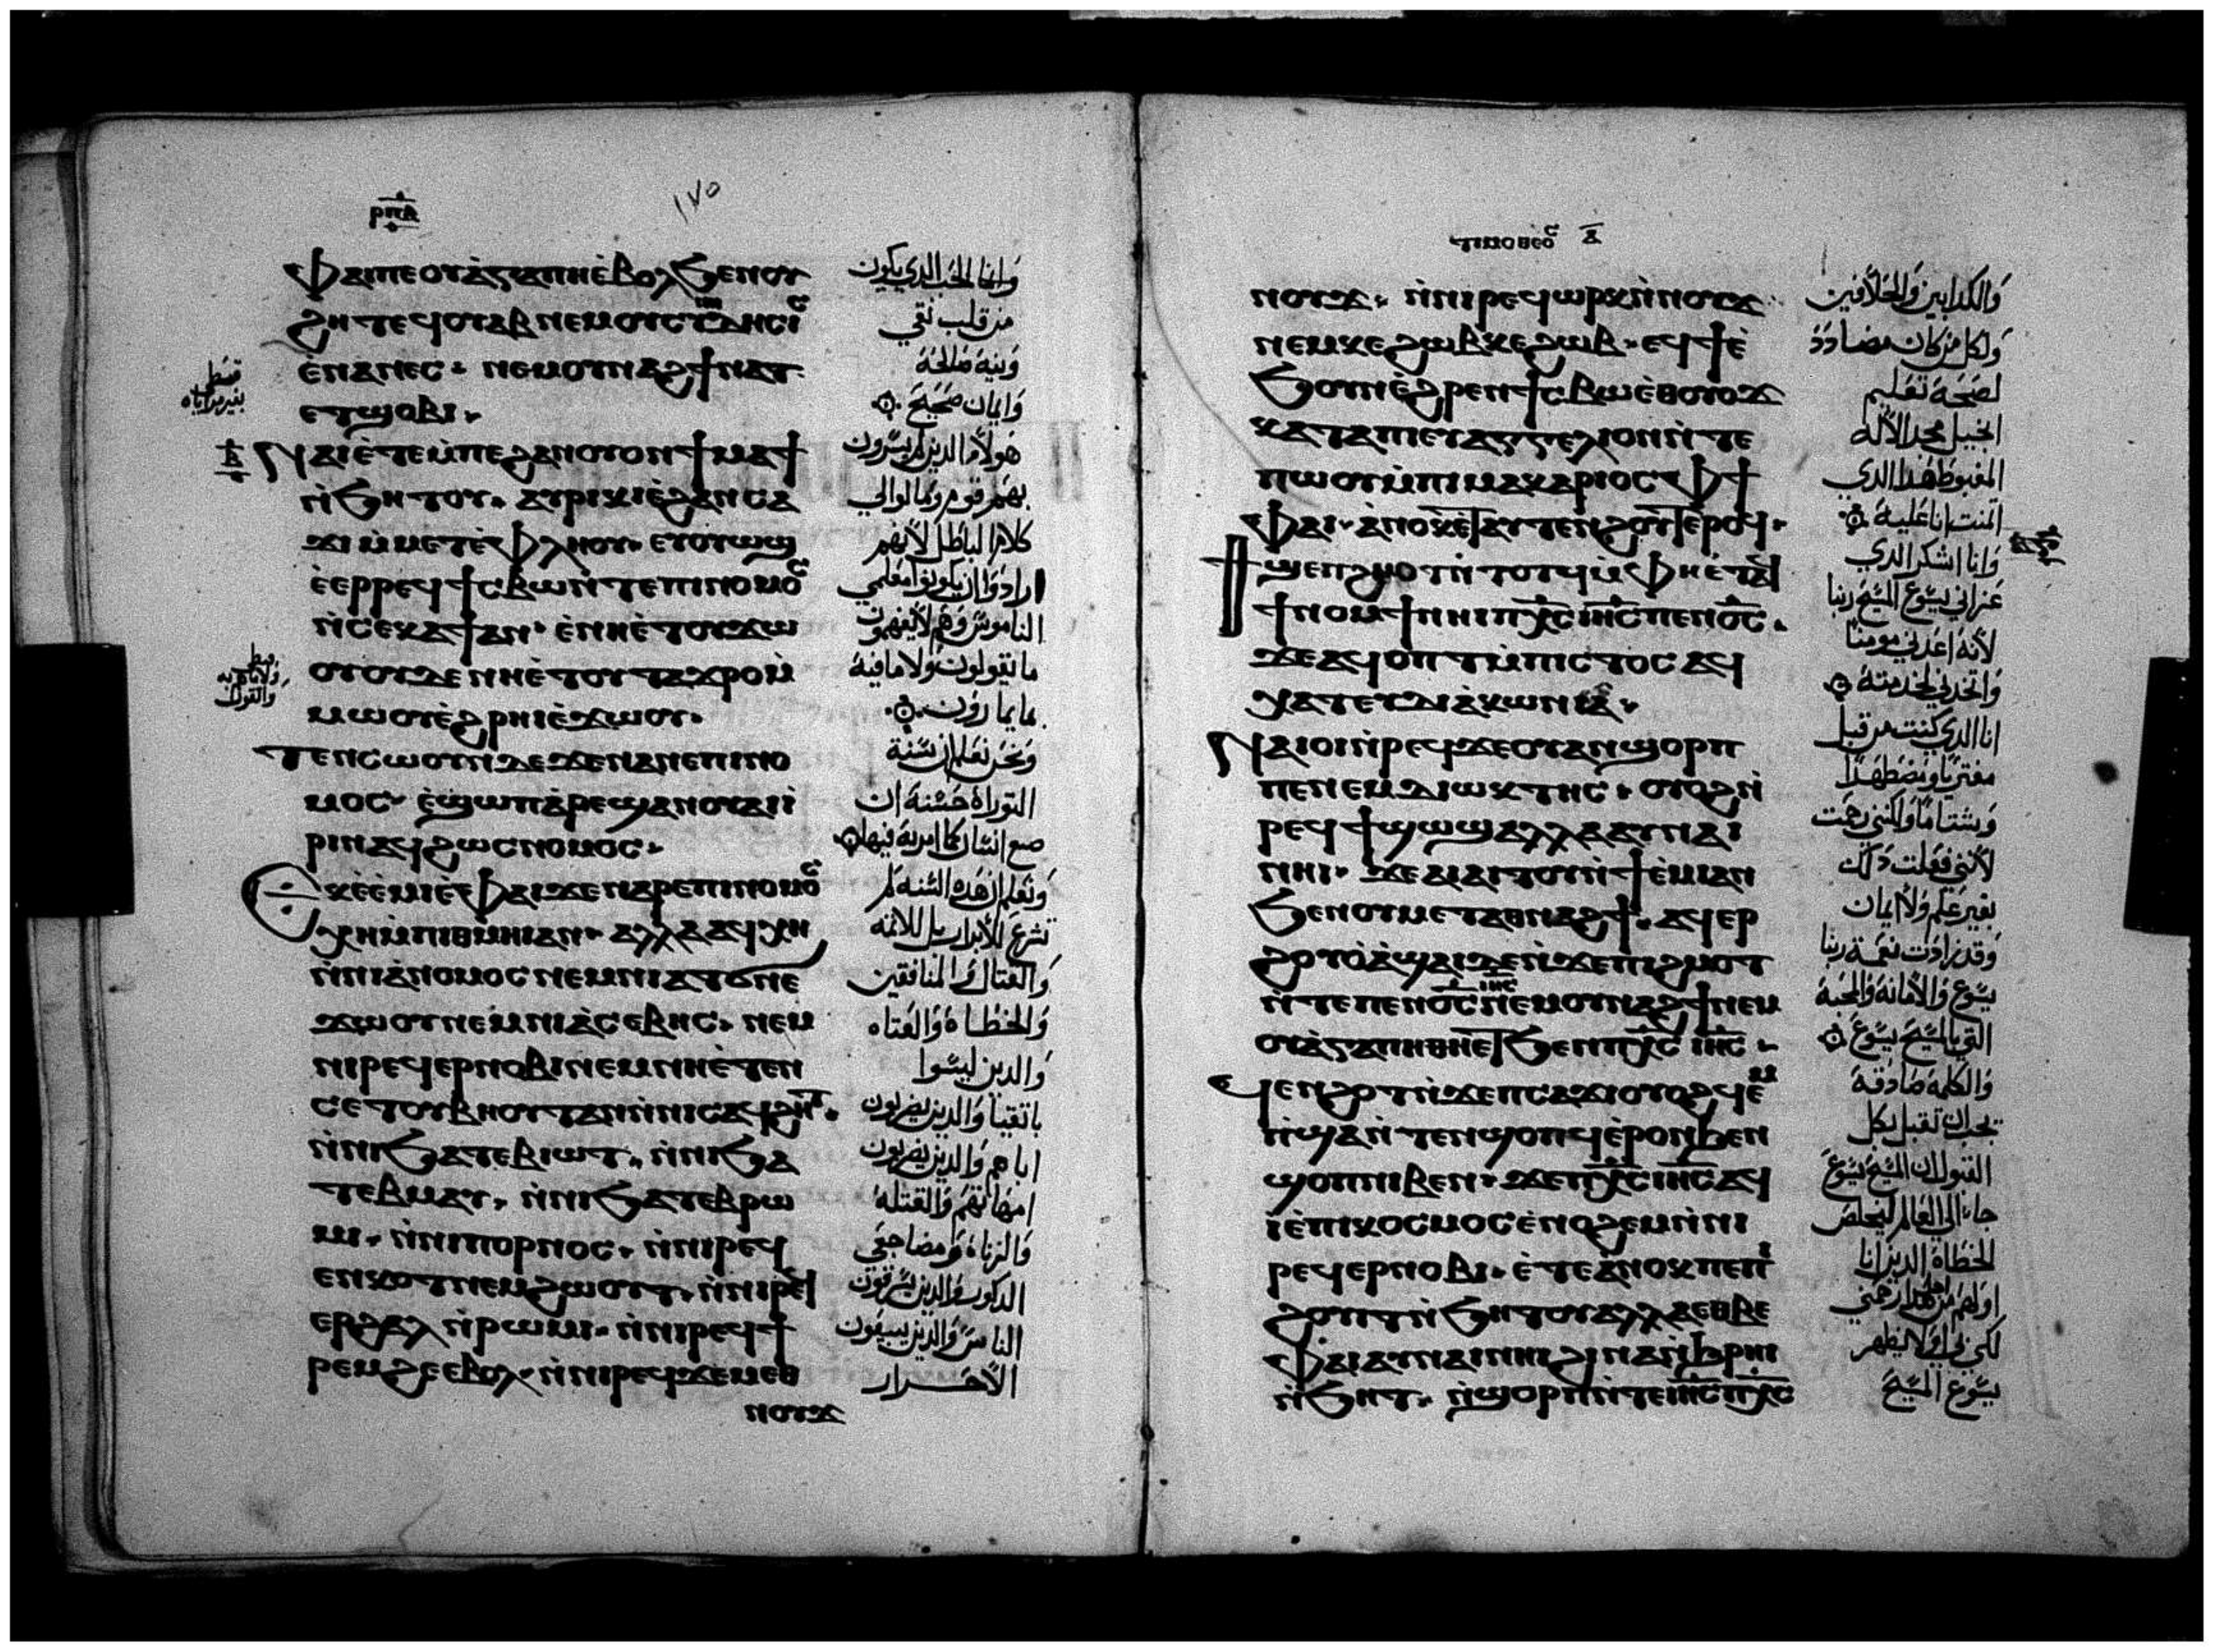 ⲣⲡⲁ
١٧٥
ⲫⲁⲓ ⲡⲉ ⲟⲩⲁ̀ⲅⲁⲡⲏ ⲉ̀ⲃⲟⲗ ϧⲉⲛ ⲟⲩ
ϩⲏⲧ ⲉϥⲟⲩⲁⲃ ⲛⲉⲙ ⲟⲩⲥⲩⲛⲏⲇⲏⲥⲓⲥ
ⲉ̀ⲛⲁⲛⲉⲥ· ⲛⲉⲙ ⲟⲩⲛⲁϩϯ ⲛⲁⲧ
ⲙⲉⲧϣⲟⲃⲓ·
ⲛⲁⲓ ⲉ̀ⲧⲉⲙ̀ⲡⲉ ϩⲁⲛⲟⲩⲟⲛ ϯⲙⲁϯ
ⲛ̀ϧⲏⲧⲟⲩ· ⲁⲩⲣⲓⲕⲓ ⲉ̀ϩⲁⲛⲥⲁ
ϫⲓ ⲙ̀ⲙⲉⲧⲉ̀ⲫⲗⲏⲟⲩ· ⲉⲩⲟⲩⲱϣ
ⲉ̀ⲉⲣⲣⲉϥϯⲥⲃⲱ ⲛ̀ⲧⲉ ⲡⲓⲛⲟⲙⲟⲥ
ⲛ̀ⲥⲉⲕⲁϯ ⲁⲛ· ⲉ̀ⲛⲏⲉ̀ⲧⲟⲩϫⲱ
ⲟⲩⲇⲉ ⲛⲏⲉ̀ⲧⲟⲩⲧⲁϫⲣⲟ ⲙ̀
ⲙⲱⲟⲩ ⲉ̀ϩⲣⲏⲓ ⲉ̀ϫⲱⲟⲩ·
ⲧⲉⲛⲥⲱⲟⲩⲛ ⲇⲉ ϫⲉ ⲛⲁⲛⲉ ⲡⲓⲛⲟ
ⲙⲟⲥ· ⲉ̀ϣⲱⲡ ⲁ̀ⲣⲉϣⲁⲛ ⲟⲩⲁⲓ ⲓ̀
ⲣⲓ ⲛⲁϥ ϩⲱⲥ ⲛⲟⲙⲟⲥ·
ⲉⲕⲉ̀ⲉ̀ⲙⲓ ⲉ̀ⲫⲁⲓ ϫⲉ ⲛⲁⲣⲉ ⲡⲓⲛⲟⲙⲟⲥ
ⲭⲏ ⲙ̀ⲡⲓⲑⲙⲏⲓ ⲁⲛ· ⲁⲗⲗⲁ ⲁϥⲭⲏ
ⲛ̀ⲛⲓⲁ̀ⲛⲟⲙⲟⲥ ⲛⲉⲙ ⲛⲓⲁⲧϭⲛⲉ
ϫⲱⲟⲩ ⲛⲉⲙ ⲛⲓⲁ̀ⲥⲉⲃⲏⲥ· ⲛⲉⲙ
ⲛⲓⲣⲉϥⲉⲣⲛⲟⲃⲓ ⲛⲉⲙ ⲛⲏⲉ̀ⲧⲉⲛ
ⲥⲉⲧⲟⲩⲃⲏⲟⲩⲧ ⲁⲛ ⲛ̀ⲛⲓⲥⲁϥϩⲏⲧ·
ⲛ̀ⲛⲓϧⲁⲧⲉⲃⲓⲱⲧ· ⲛ̀ⲛⲓϧⲁ
ⲧⲉⲃⲙⲁⲩ· ⲛ̀ⲛⲓϧⲁⲧⲉⲃⲣⲱ
ⲙⲓ· ⲛ̀ⲛⲓⲡⲟⲣⲛⲟⲥ· ⲛ̀ⲛⲓⲣⲉϥ
ⲉⲛⲕⲟⲧ ⲛⲉⲙ ϩⲱⲟⲩⲧ· ⲛ̀ⲛⲓⲣⲉϥ
ⲉⲣϩⲁⲗ ⲛ̀ⲣⲱⲙⲓ· ⲛ̀ⲛⲓⲣⲉϥϯ
ⲣⲉⲙϩⲉ ⲉⲃⲟⲗ· ⲛ̀ⲛⲓⲣⲉϥϫⲉⲙⲉⲑ
ⲛⲟⲩϫ
وانما الحب الذي يكون
من قلب نقي
ونية صالحة
وايمان صحيح
هولا الذين لم يسرون
بهم قوم ومالوا الي
كلام الباطل لأنهم
ارادوا ان يكونوا معلمي
الناموس وهم لا يفهمون
ما يقولون ولا ما فيه
يمارون
ونحن نعلم ان سنة
التوراة حسنة ان
صنع انسان كما امر به فيها
ونعلم ان هذه السنه لم
تشرع للأبرار بل للاثمه
والقتال والمنافقين
والخطاة والعتاه
والذين ليسوا
باتقيا والذين يضربون
اباهم والذين يضربون
امهاتهم والقتلة
والزناة ومضاجعي
الذكور والذين يسرقون
الناس والذين يبيعون
الأحرار
ⲧⲓⲙⲟⲑⲉⲟⲥ ⲁ̅
ⲛⲟⲩϫ· ⲛ̀ⲛⲓⲣⲉϥⲱⲣⲕ ⲛ̀ⲛⲟⲩϫ·
ⲛⲉⲙ ⲕⲉϩⲱⲃ ⲕⲉϩⲱⲃ· ⲉϥϯ ⲉ̀
ϧⲟⲩⲛ ⲉ̀ϩⲣⲉⲛ ϯⲥⲃⲱ ⲉⲑⲟⲩⲟϫ
ⲕⲁⲧⲁ ⲡⲓⲉⲩⲁⲅⲅⲉⲗⲓⲟⲛ ⲛ̀ⲧⲉ
ⲡⲱⲟⲩ ⲙ̀ⲡⲓⲙⲁⲕⲁⲣⲓⲟⲥ ⲫϯ
ⲫⲁⲓ· ⲁ̀ⲛⲟⲕ ⲉ̀ⲧⲁⲩⲧⲉⲛϩⲟⲩⲧ ⲉⲣⲟϥ·
ϯϣⲉⲡϩⲙⲟⲧ ⲛ̀ⲧⲟⲧϥ ⲙ̀ⲫⲏⲉ̀ⲧⲁϥ
ϯⲛⲟⲙϯ ⲛⲏⲓ ⲡⲭ̅ⲥ̅ ⲓⲏ̅ⲥ̅ ⲡⲉⲛⲟ̅ⲥ̅·
ϫⲉ ⲁϥⲟⲡⲧ ⲙ̀ⲡⲓⲥⲧⲟⲥ ⲁϥ
ⲭⲁⲧ ⲉⲩⲇⲓⲁ̀ⲕⲱⲛⲓⲁ·
ⲛⲁⲓⲟⲓ ⲛ̀ⲣⲉϥϫⲉⲟⲩⲁ ⲛ̀ϣⲟⲣⲡ
ⲡⲉ ⲛⲉⲙ ⲇⲓⲱⲕⲧⲏⲥ· ⲟⲩⲟϩ ⲛ̀
ⲣⲉϥϯϣⲱϣ ⲁⲗⲗⲁ ⲁⲩⲛⲁⲓ
ⲛⲏⲓ· ϫⲉ ⲁⲓⲁⲓⲧⲟⲩ ⲛ̀ϯⲉ̀ⲙⲓ ⲁⲛ
ϧⲉⲛ ⲟⲩⲙⲉⲧⲁⲑⲛⲁϩϯ· ⲁϥⲉⲣ
ϩⲟⲩⲟ̀ ⲁ̀ϣⲁⲓ ⲇⲉ ⲛ̀ϫⲉ ⲡⲓϩⲙⲟⲧ
ⲛ̀ⲧⲉ ⲡⲉⲛⲟ̅ⲥ̅ ⲓⲏ̅ⲥ̅ ⲛⲉⲙ ⲟⲩⲛⲁϩϯ ⲛⲉⲙ
ⲟⲩⲁ̀ⲅⲁⲡⲏ ⲑⲏⲉ̀ⲧ ϧⲉⲛ ⲡⲭ̅ⲥ̅ ⲓⲏ̅ⲥ̅·
ϥⲉⲛϩⲟⲧ ⲛ̀ϫⲉ ⲡⲥⲁϫⲓ ⲟⲩⲟϩ ϥⲉⲙ̀
ⲡϣⲁ ⲛ̀ⲧⲉⲛϣⲟⲡϥ ⲉ̀ⲣⲟⲛ ϧⲉⲛ
ϣⲟⲡ ⲛⲓⲃⲉⲛ· ϫⲉ ⲡⲭ̅ⲥ̅ ⲓⲏ̅ⲥ̅ ⲁϥ
ⲓ̀ ⲉ̀ⲡⲓⲕⲟⲥⲙⲟⲥ ⲉ̀ⲛⲟϩⲉⲙ ⲛ̀ⲛⲓ
ⲣⲉϥⲉⲣⲛⲟⲃⲓ· ⲉ̀ⲧⲉ ⲁ̀ⲛⲟⲕ ⲡⲉ ⲡⲉ
ϩⲟⲩⲓⲧ ⲛ̀ϧⲏⲧⲟⲩ ⲁⲗⲗⲁ ⲉⲑⲃⲉ
ⲫⲁⲓ ⲁⲩⲛⲁⲓ ⲛⲏⲓ ϩⲓⲛⲁ ⲛ̀ϩⲣⲏⲓ
ⲛ̀ϧⲏⲧ· ⲛ̀ϣⲟⲣⲡ ⲛ̀ⲧⲉ ⲓⲏ̅ⲥ̅ ⲡⲭ̅ⲥ̅
والكدابين والحلافين
ولكل من كان مضادد
لصحة تعليم
انجيل مجد الأله
المغبوط هذا الدي
اتمنت انا عليه
وانا اشكر الدي
عزاني يسوع المسيح ربنا
لأنه اعدني مومنا
واتخدني لخدمته
انا الدي كنت من قبل
مفتريا ومضطهدا
وشتاما ولكنني رحمت
لأنني فعلت دلك
بغير علم ولا ايمان
وقد زادت نعمة ربنا
يسوع والأمانة والمحبة
التي بالمسيح يسوع
والكلمة صادقة
يجب ان تقبل بكل
القبول ان المسيح يسوع
جاء الي العالم ليخلص
الخطاة الدين انا
اولهم من اجل هذا رحمني
لكن في اولا يظهر
يسوع المسيح